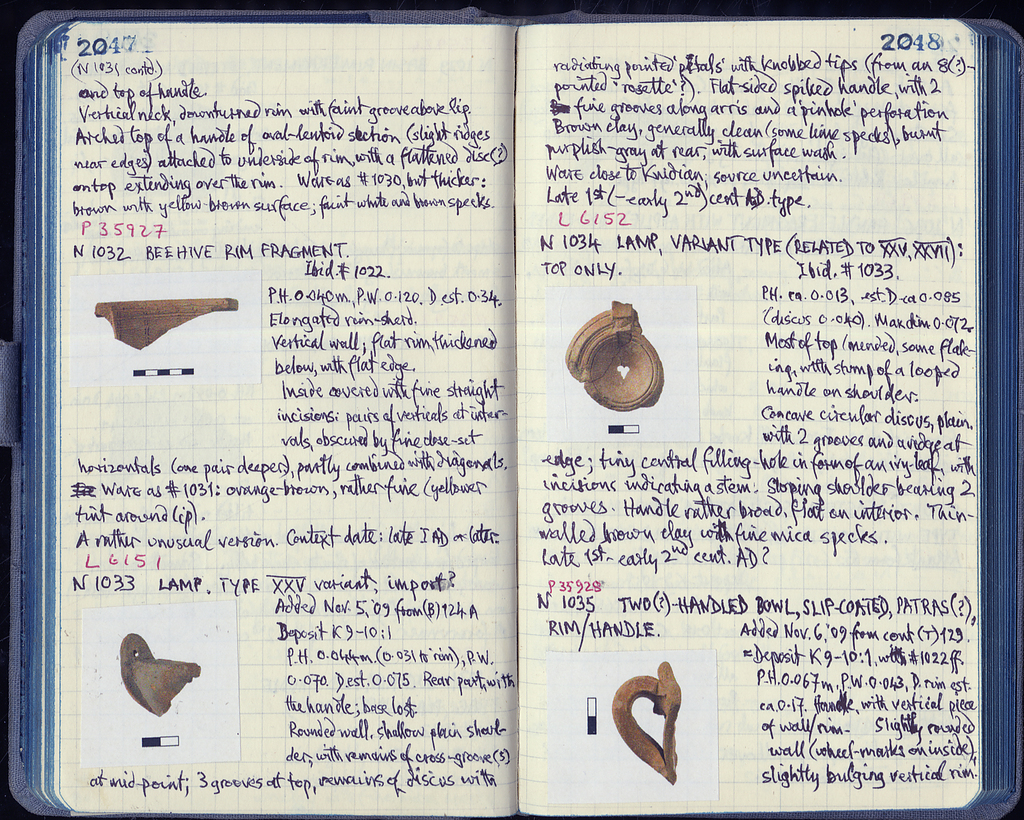 2047
(N 1031 contd.)
and top of handle.
Vertical neck, downturned rim with faint groove above lip.
Arched top of a handle of oval-lentoid section (slight ridges
near edges) attached to underside of rim, with a flattened disc(?)
on top extending over the rim. Ware as #1030, but thicker:
brown with yellow-brown surface; faint white and brown specks.
P 35927
N 1032 BEEHIVE RIM FRAGMENT.
Ibid. # 1022.
P.H. 0.040 m., P.W. 0.120. D est. 0.34.
Elongated rim-sherd.
Vertical wall; flat rim, thickened
below, with flat edge.
Inside covered with fine straight
incisions: pairs of verticals at inter-
vals, obscured by fine close-set
horizontals (one pair deeper), partly combined with diagonals.
Ware as #1031: orange-brown, rather fine (yellower
tint around lip).
A rather unusual version. Context date: late I AD or later.
L 6151
N 1033 LAMP, TYPE XXV variant, import?
Added Nov. 5, '09 from (B) 124 A
Deposit K 9-10:1
P.H. 0.044 m. (0.031 to rim), P.W.
0.070. D est. 0.075. Rear part, with
the handle; base lost.
Rounded wall, shallow plain shoul-
der, with remains of cross-groove(s)
at mid-point; 3 grooves at top, remains of discus with
2048
radiating pointed 'petals' with knobbed tips (from an 8(?)-
pointed 'rosette'?). Flat-sided spiked handle, with 2
fine grooves along arris and a 'pinhole' perforation
Brown clay, generally clean (some lime specks), burnt
purplish-gray at rear, with surface wash.
Ware close to Knidian; source uncertain.
Late 1st (-early 2nd) cent. AD. type.
L 6152
N 1034 LAMP, VARIANT TYPE (RELATED TO XXV, XXVII):
TOP ONLY.
Ibid. #1033.
P.H. ca. 0.013, est. D. ca 0.085
(discus 0.040). Max dim 0.072.
Most of top (mended, some flak-
ing, with stump of a looped
handle on shoulder.
Concave circular discus, plain,
with 2 grooves and a ridge at
edge; tiny central filling-hole in form of an ivy-leaf, with
incisions indicating a stem. Sloping shoulder bearing 2
grooves. Handle rather broad, flat on interior. Thin-
walled brown clay with fine mica specks.
Late 1st-early 2nd cent. AD?
P 35928
N 1035 TWO(?)-HANDLED BOWL, SLIP-COATED, PATRAS(?),
RIM/HANDLE.
Added Nov. 6, '09 from cont (T) 129.
= Deposit K 9-10:1, with #1022 ff.
P.H. 0.067 m, P.W. 0.043, D. rim est.
ca. 0.17. Handle, with vertical piece
of wall/rim. Slightly rounded
wall (wheel-marks on inside),
slightly bulging vertical rim.